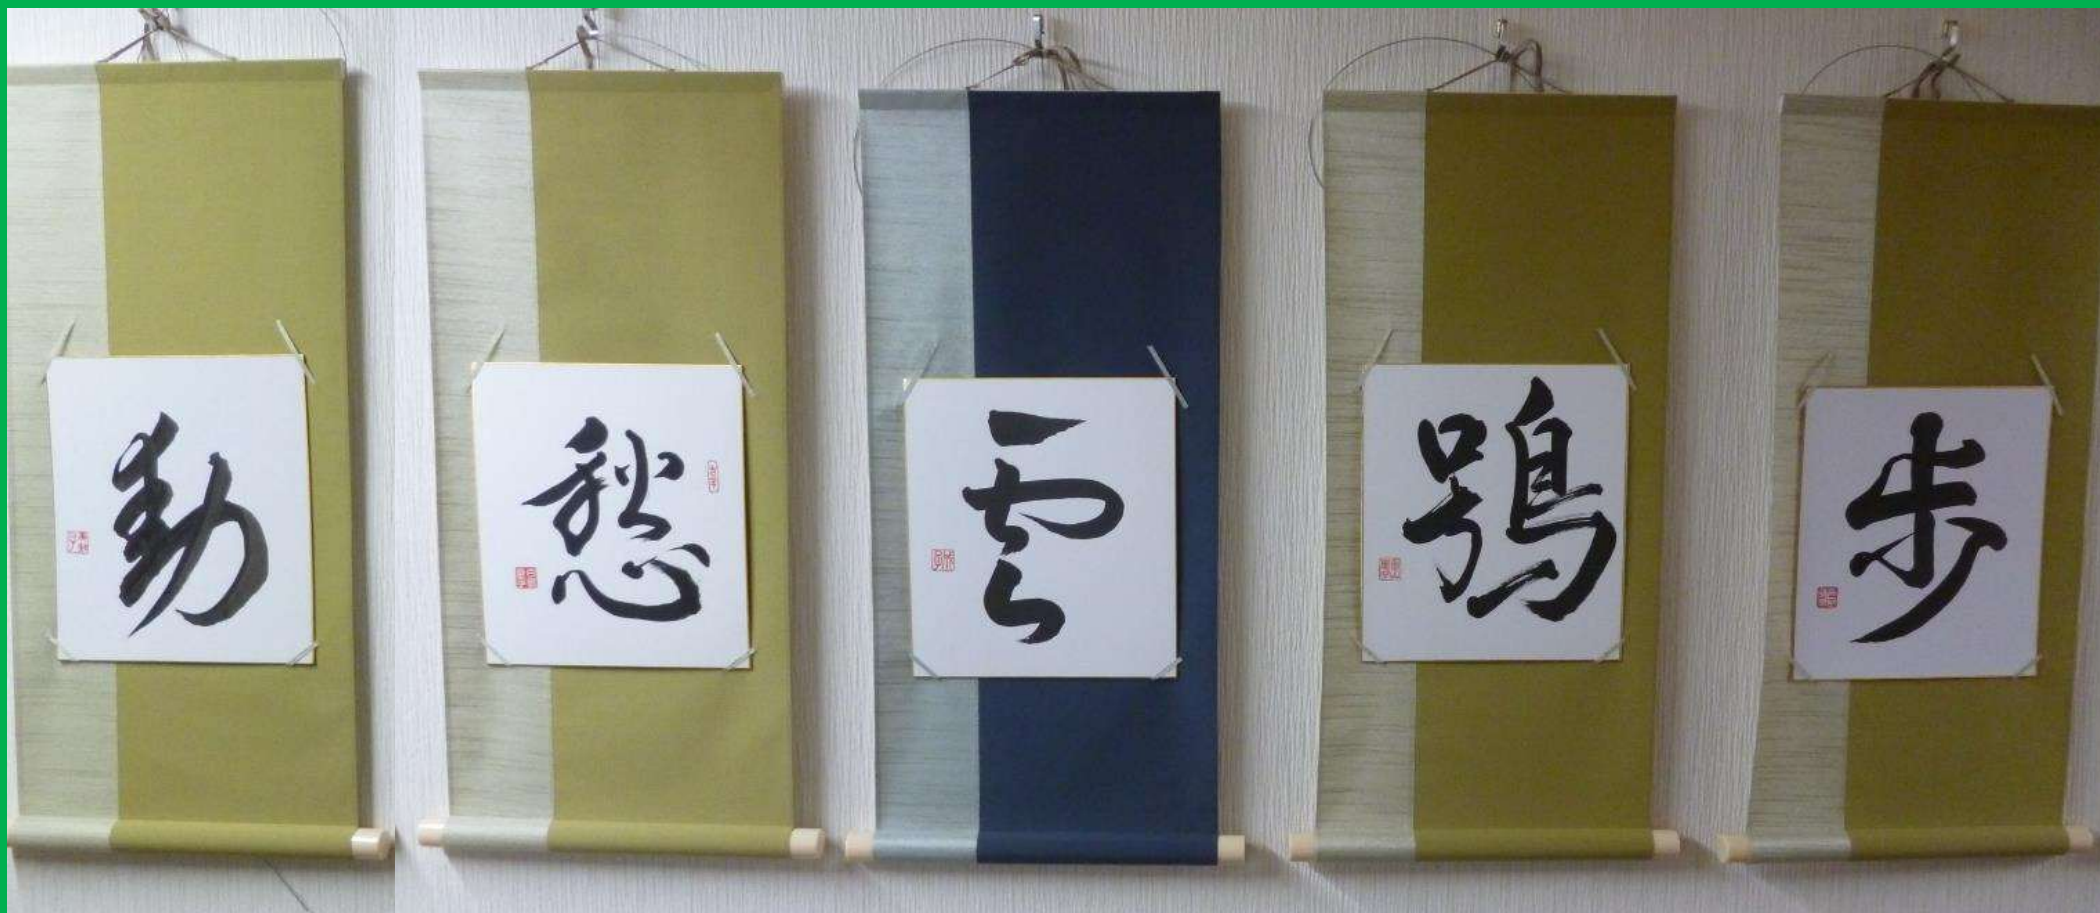 動
愁
雲
鴞
歩